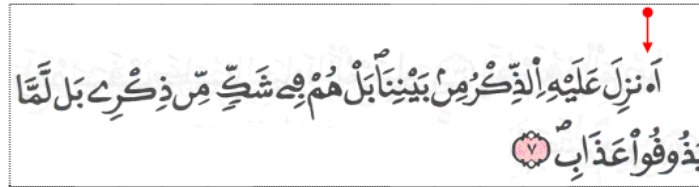 اَ۟نزِلَ عَلَيْهِ اِ۬لذِّكْرُ مِنۢ بَيْنِنَاۖ بَلْ هُمْ فِے شَكّٖ مِّن ذِكْرِے بَل لَّمَّا
يَذُوقُواْ عَذَابِۖ ٧